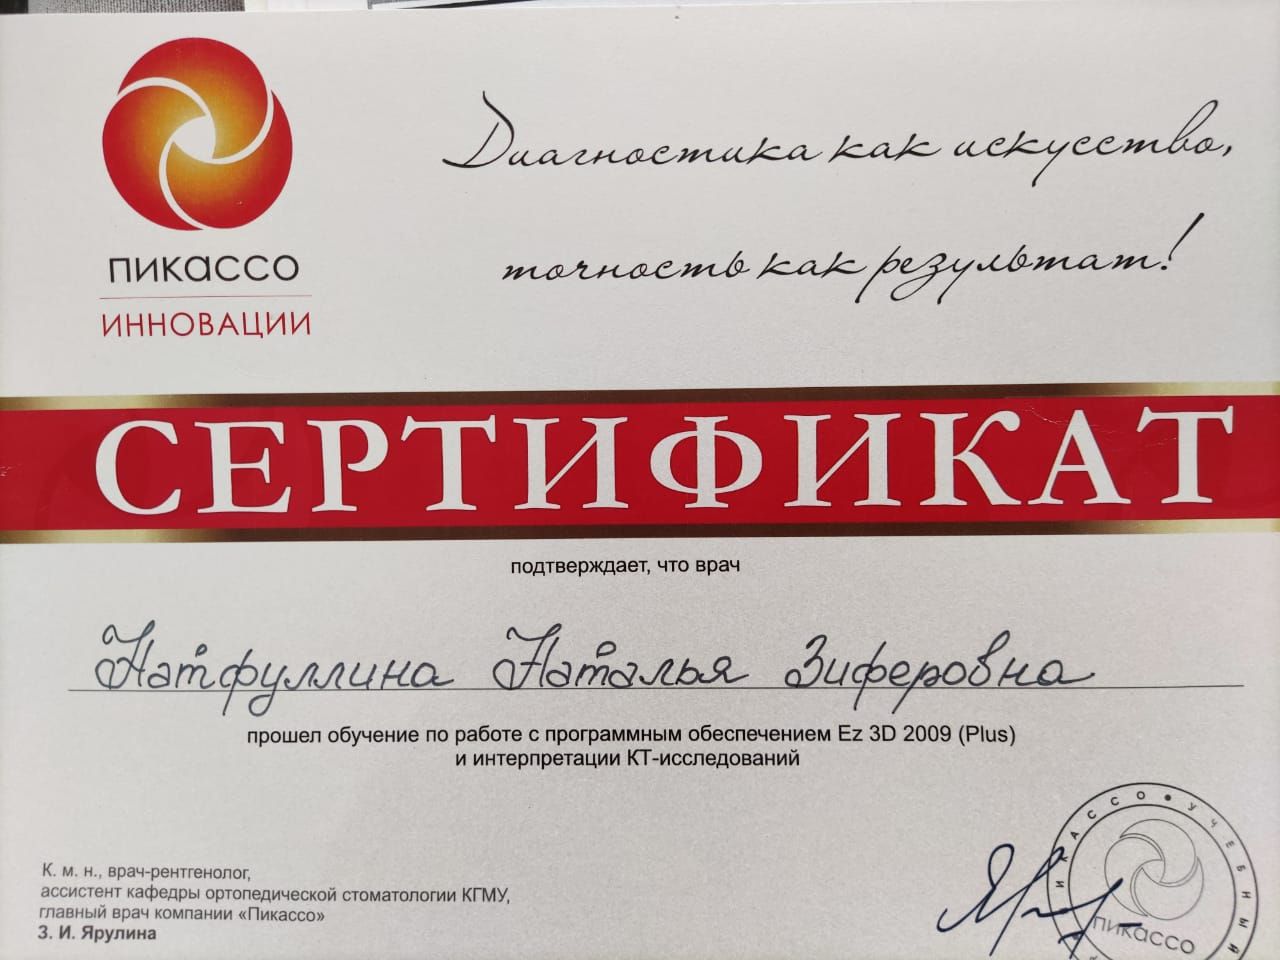 ПИКАССО
ИННОВАЦИИ
Диагностика как искусство,
точность как результат!
СЕРТИФИКАТ
подтверждает, что врач
Натфуллина Наталья Зиферовна
прошел обучение по работе с программным обеспечением Ez 3D 2009 (Plus)
и интерпретации КТ-исследований
К. м. н., врач-рентгенолог,
ассистент кафедры ортопедической стоматологии КГМУ,
главный врач компании «Пикассо»
З. И. Ярулина
ПИКАССО • УЧЕБНЫЙ
ПИКАССО